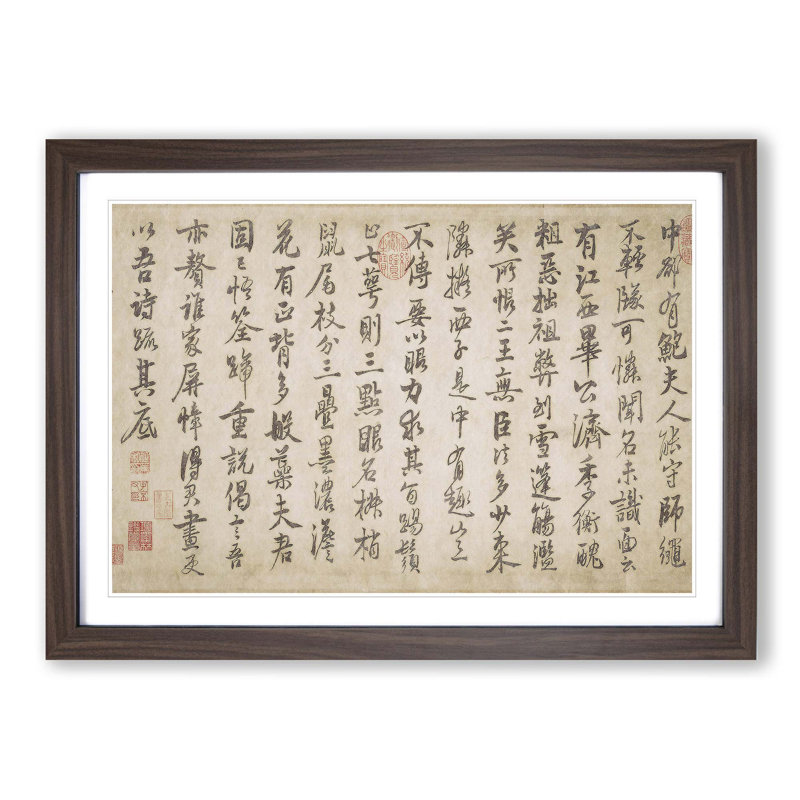 中却有鮑夫人能守師繩
不輕墜可憐聞名未識面云
有江西畢公濟季衡醜
粗惡拙祖弊到雪蓬觴濫
矣所恨二王無臣法多少東
隣擬西子是中有趣豈
不傳要以眼力求其旨踢鬚
止七萼則三點眼名椒梢
鼠尾枝分三疊墨濃淡
花有正背多般蕊夫君
固已悟筌蹄重說偈言吾
亦贅誰家屏幛得君畫更
以吾詩疏其底